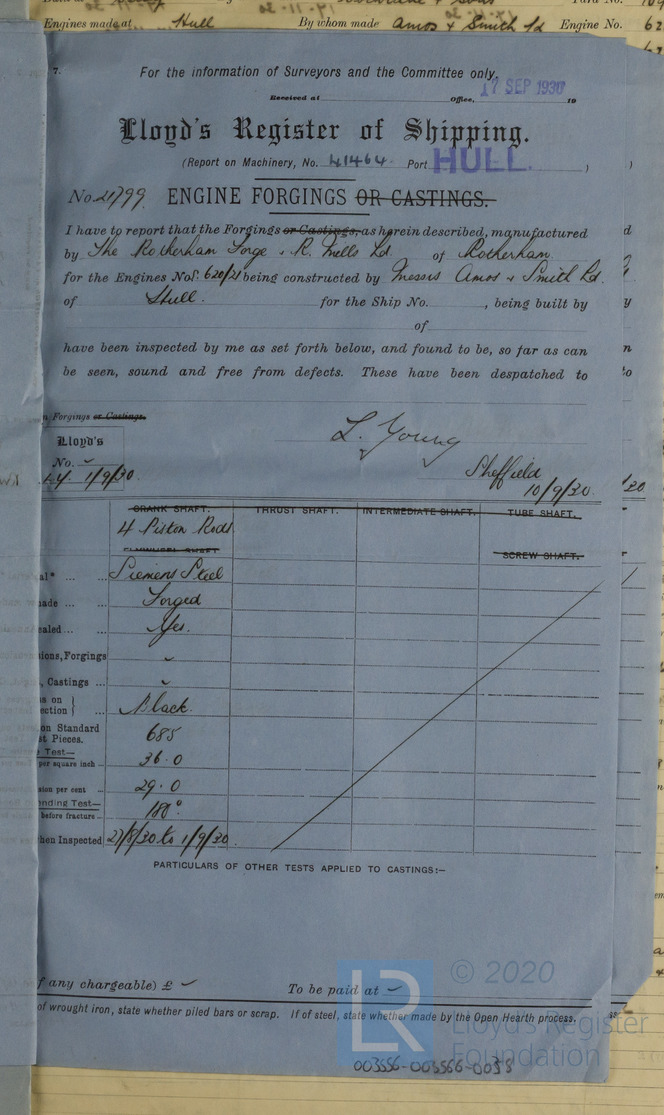 Engines made at Hull By whom made Amos & Smith Ld Engine No. 62
7.
For the information of Surveyors and the Committee only.
Received at Office, 17 SEP 1930 19
Lloyd's Register of Shipping.
(Report on Machinery, No. 41464 Port HULL. )
No. 21799 ENGINE FORGINGS OR CASTINGS.
I have to report that the Forgings or Castings, as herein described, manufactured
by The Rotherham Forge & R. Mills Ld. of Rotherham
for the Engines Nos. 620/21 being constructed by Messrs Amos & Smith Ld.
of Hull. for the Ship No. , being built by
of
have been inspected by me as set forth below, and found to be, so far as can
be seen, sound and free from defects. These have been despatched to
Forgings or Castings.
Lloyd's
No.
L.Y. 1/9/30.
L. Young
Sheffield
10/9/30.
CRANK SHAFT. THRUST SHAFT. INTERMEDIATE SHAFT. TUBE SHAFT.
4 Piston Rods
FLYWHEEL SHAFT SCREW SHAFT.
al* ... ... Siemens Steel
made ... ... Forged
ealed ... ... Yes.
ions, Forgings
, Castings ...
s on }
ection } Black.
on Standard
t Pieces. 685
Test—
per square inch ... 36.0
sion per cent ... 29.0
nding Test—
before fracture ... 180°
hen Inspected 27/8/30 to 1/9/30
PARTICULARS OF OTHER TESTS APPLIED TO CASTINGS:—
f any chargeable) £ To be paid at
of wrought iron, state whether piled bars or scrap. If of steel, state whether made by the Open Hearth process.
LR © 2020
Lloyd's Register
Foundation
003556-003566-0038